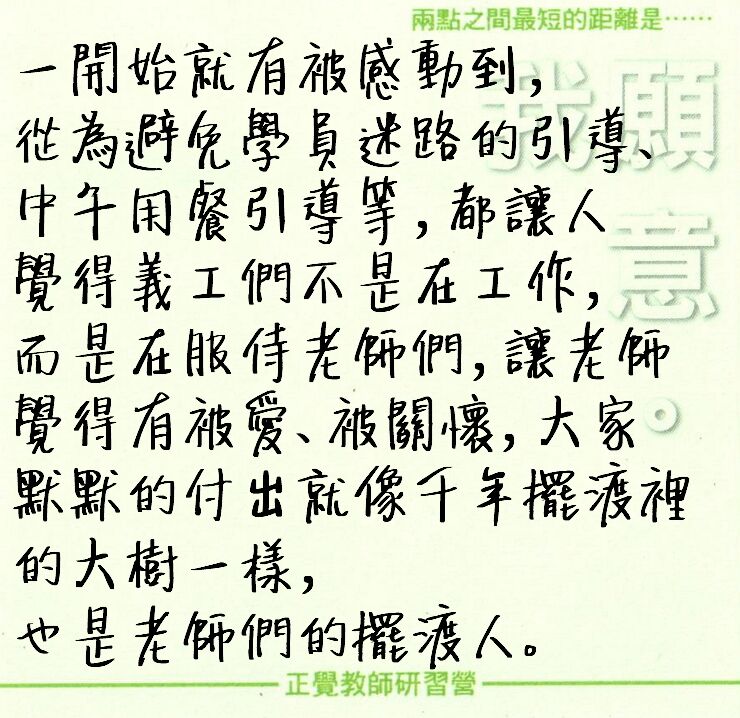 兩點之間最短的距離是……
我願意。
一開始就有被感動到,
從為避免學員迷路的引導、
中午用餐引導等,都讓人
覺得義工們不是在工作,
而是在服侍老師們,讓老師
覺得有被愛、被關懷,大家
默默的付出就像千年擺渡裡
的大樹一樣,
也是老師們的擺渡人。
正覺教師研習營